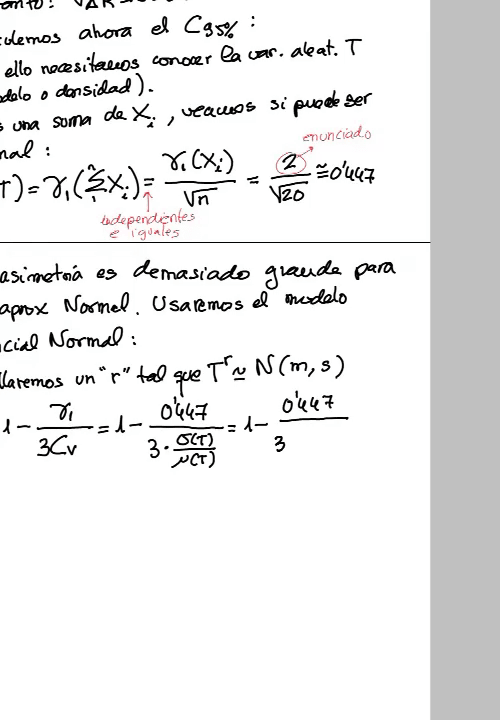 demos ahora el C95% :
ello necesitamos conocer la var. aleat. T
delo o densidad).
s una suma de Xi, veamos si puede ser
mal :
enunciado
T) = γ₁(ΣⁿXi) = γ₁(Xi)/√n = 2/√20 ≅ 0'447
independientes
e iguales
asimetría es demasiado grande para
aprox Normal. Usaremos el modelo
ncial Normal :
llaremos un "r" tal que Tʳ ≃ N(m, s)
1 - γ₁/3Cv = 1 - 0'447/3·σ(T)/μ(T) = 1 - 0'447/3